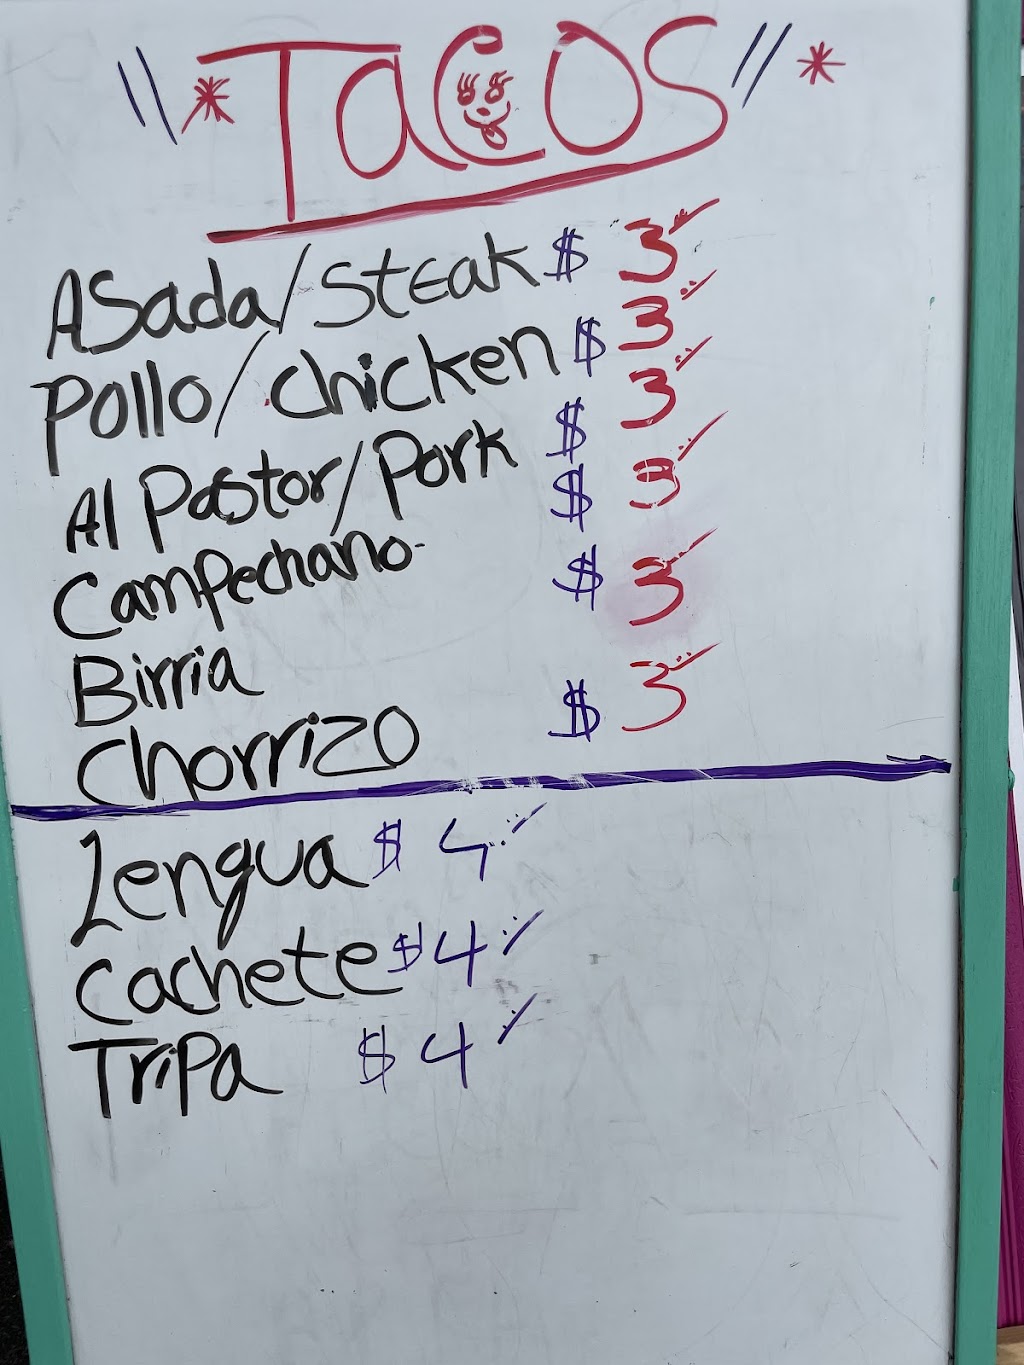 "*TaCOS"*
Asada/Steak $ 3
Pollo/Chicken $ 3
Al Pastor/Pork $ 3
Campechano $ 3
Birria $ 3
Chorrizo $ 3
Lengua $ 4
Cachete $ 4
Tripa $ 4